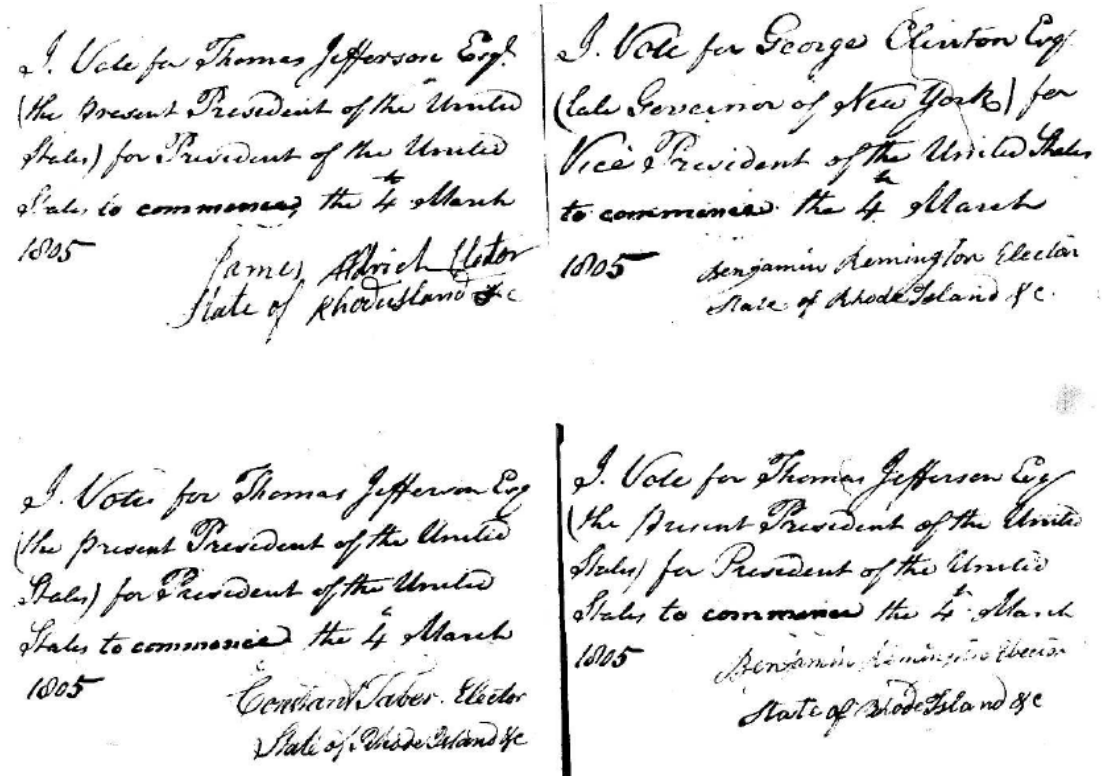 I. Vote for Thomas Jefferson Esqr.
(the present President of the United
States) for President of the United
States to commence the 4th March
1805
James Aldrich Elector
State of Rhode Island &c
I. Vote for George Clinton Esqr
(late Governor of New York) for
Vice President of the United States
to commence the 4th March
1805
Benjamin Remington Elector
State of Rhode Island &c.
I. Vote for Thomas Jefferson Esq
(the present President of the United
States) for President of the United
States to commence the 4th March
1805
Constant Taber. Elector
State of Rhode Island &c
I. Vote for Thomas Jefferson Esq
(the present President of the United
States) for President of the United
States to commence the 4th March
1805
Benjamin Remington Elector
State of Rhode Island &c